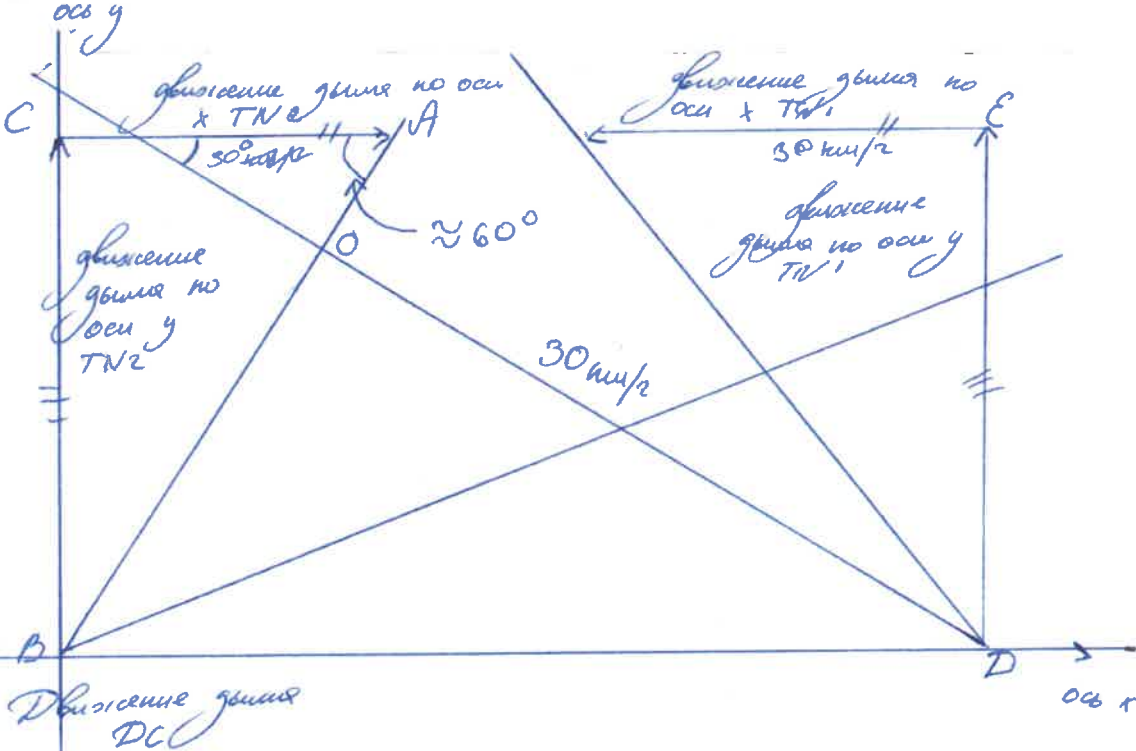 ось y
движение дыма по оси
x TN2
A
C
30°
≈60°
O
движение
дыма по
оси y
TN2
движение дыма по
оси x TN1
E
30 км/г
движение
дыма по оси y
TN1
30 км/г
B
D
ось x
Движение дыма
DC